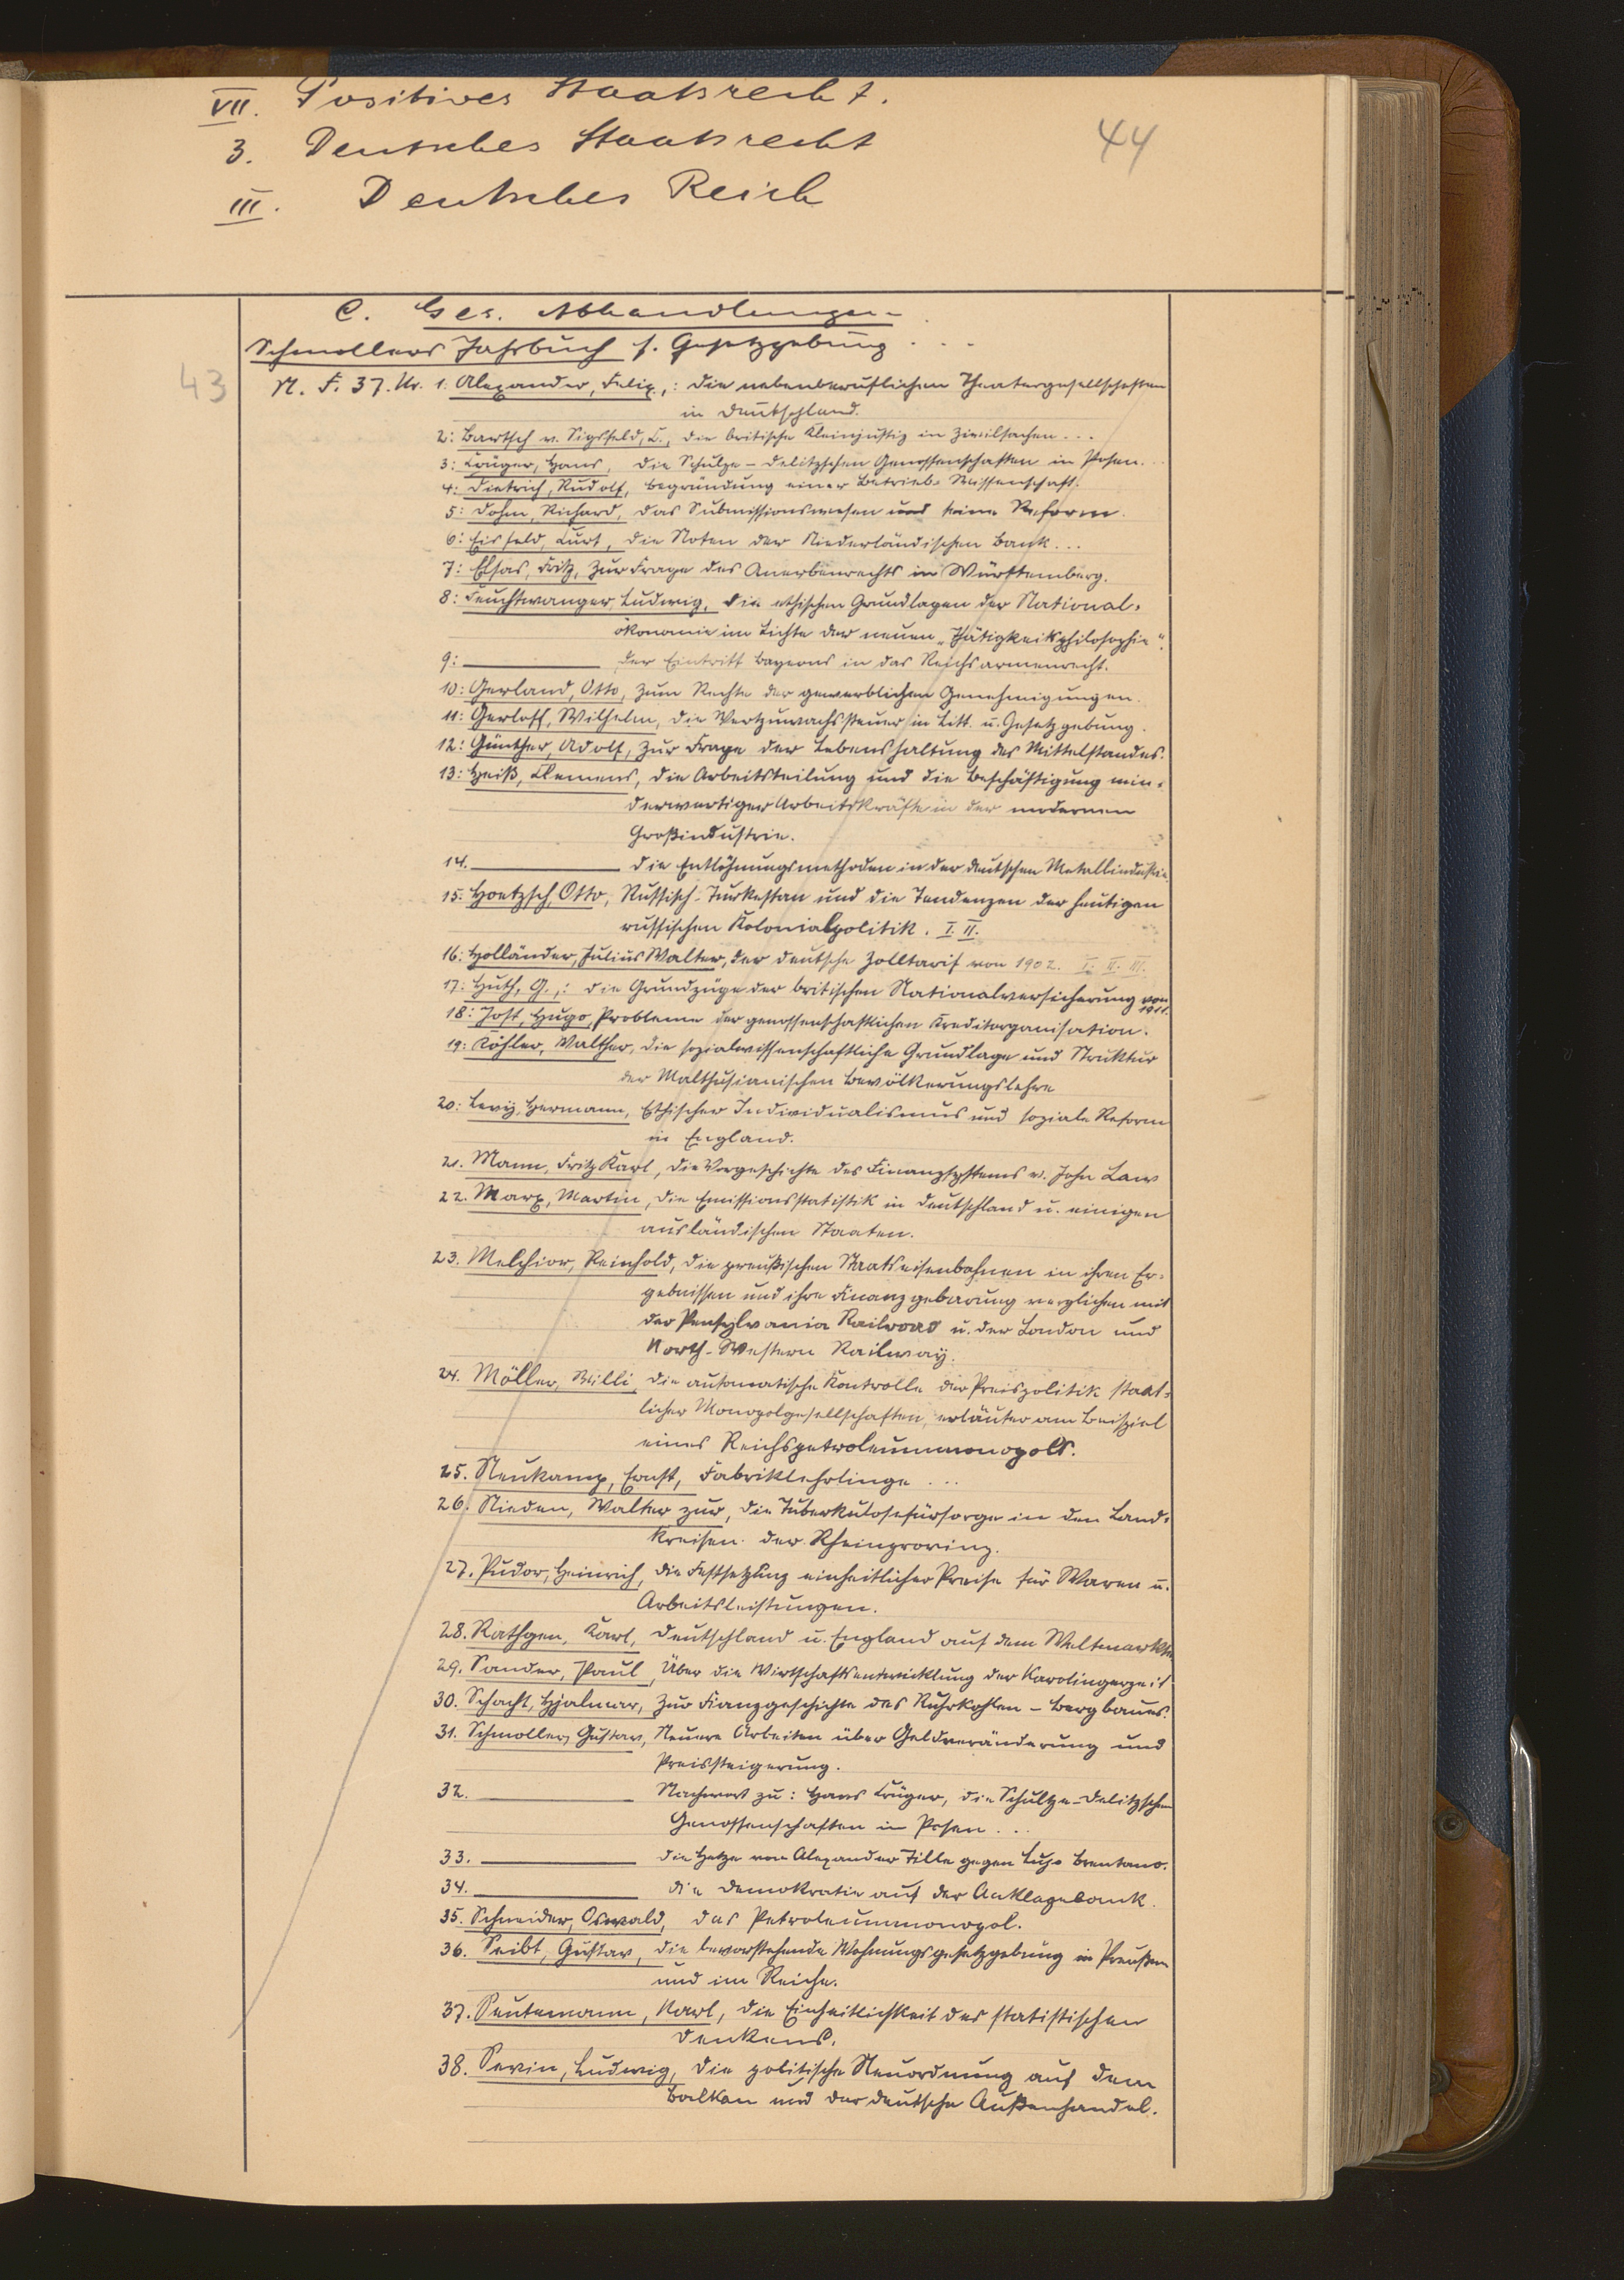 VII. Positives Staatsrecht.
3. Deutsches Staatsrecht
44
III. Deutsches Reich
C. Ges. Abhandlungen
Schmollers Jahrbuch f. Gesetzgebung . . .
43
N. F. 37. Nr. 1. Alexander, Felix,: die nebenberuflichen Theatergesellschaften
in Deutschland.
2: Bartsch v. Sigsfeld, C., die britische Kleinjustiz in Zivilsachen . . .
3: Krüger, Hans, die Schulze-Delitzschen Genossenschaften in Posen. . .
4: Dietrich, Rudolf, Begründung einer Betriebs-Wissenschaft.
5: Dohm, Richard, das Submissionswesen und seine Reform.
6: Eisfeld, Curt, die Noten der Niederländischen Bank. . .
7: Elsas, Fritz, Zur Frage des Anerbenrechts in Württemberg.
8: Feuchtwanger, Ludwig, die ethischen Grundlagen der National-
ökonomie im Lichte der neuen „Thätigkeitsphilosophie“.
9: ——— der Eintritt Bayerns in das Reichsarmenrecht.
10: Gerland, Otto, Zum Rechte der gewerblichen Genehmigungen.
11: Gerloff, Wilhelm, die Wertzuwachssteuer in Litt. u. Gesetzgebung.
12: Günther, Adolf, Zur Frage der Lebenshaltung des Mittelstandes.
13: Heiß, Clemens, die Arbeitsteilung und die Beschäftigung min-
derwertiger Arbeitskräfte in der modernen
Großindustrie.
14. ——— die Entlöhnungsmethoden in der deutschen Metallindustrie.
15. Hoetzsch, Otto, Russisch-Turkestan und die Tendenzen der heutigen
russischen Kolonialpolitik. I. II.
16: Holländer, Julius Walter, der deutsche Zolltarif von 1902. I. II. III.
17: Huth, G.,: die Grundzüge der britischen Nationalversicherung von
1911.
18: Jost, Hugo, Probleme der genossenschaftlichen Kreditorganisation.
19: Köhler, Walther, die sozialwissenschaftliche Grundlage und Struktur
der Malthusianischen Bevölkerungslehre
20: Levy, Hermann, Ethischer Individualismus und soziale Reform
in England.
21. Mann, Fritz Karl, die Vorgeschichte des Finanzsystems v. John Law
22. Marx, Martin, die Emissionsstatistik in Deutschland u. einigen
ausländischen Staaten.
23. Melchior, Reinhold, die preußischen Staatseisenbahnen in ihren Er-
gebnissen und ihre Finanzgebarung verglichen mit
der Pensylvania Railroad u. der London und
North-Western Railway.
24. Möller, Willi, die automatische Kontrolle der Preispolitik staat-
licher Monopolgesellschaften, erläuter am Beispiel
eines Reichspetroleummonopols.
25. Neukamp, Ernst, Fabriklehrlinge . . .
26. Nieden, Walter zur, die Tuberkulosefürsorge in den Land-
kreisen der Rheinprovinz.
27. Pudor, Heinrich, die Festsetzung einheitlicher Preise für Waren u.
Arbeitsleistungen.
28. Rathgen, Karl, Deutschland u. England auf dem Weltmarkte
29. Sander, Paul, Über die Wirtschaftsentwicklung der Karolingerzeit
30. Schacht, Hjalmar, Zur Fianzgeschichte des Ruhrkohlen-Bergbaues.
31. Schmoller, Gustav, Neuere Arbeiten über Geldveränderung und
Preissteigerung.
32. ——— Nachwort zu: Hans Crüger, die Schultze-Delitzschen
Genossenschaften in Posen . . .
33. ——— die Hetze von Alexander Tille gegen Lujo Brentano.
34. ——— die Demokratie auf der Anklagebank.
35. Schneider, Oswald, das Petroleummonopol.
36. Seibt, Gustav, die bevorstehende Wohnungsgesetzgebung in Preußen
und im Reiche.
37. Seutemann, Karl, die Einheitlichkeit des statistischen
Denkens.
38. Sevin, Ludwig, die politische Neuordnung auf dem
Balkan und der deutsche Außenhandel.